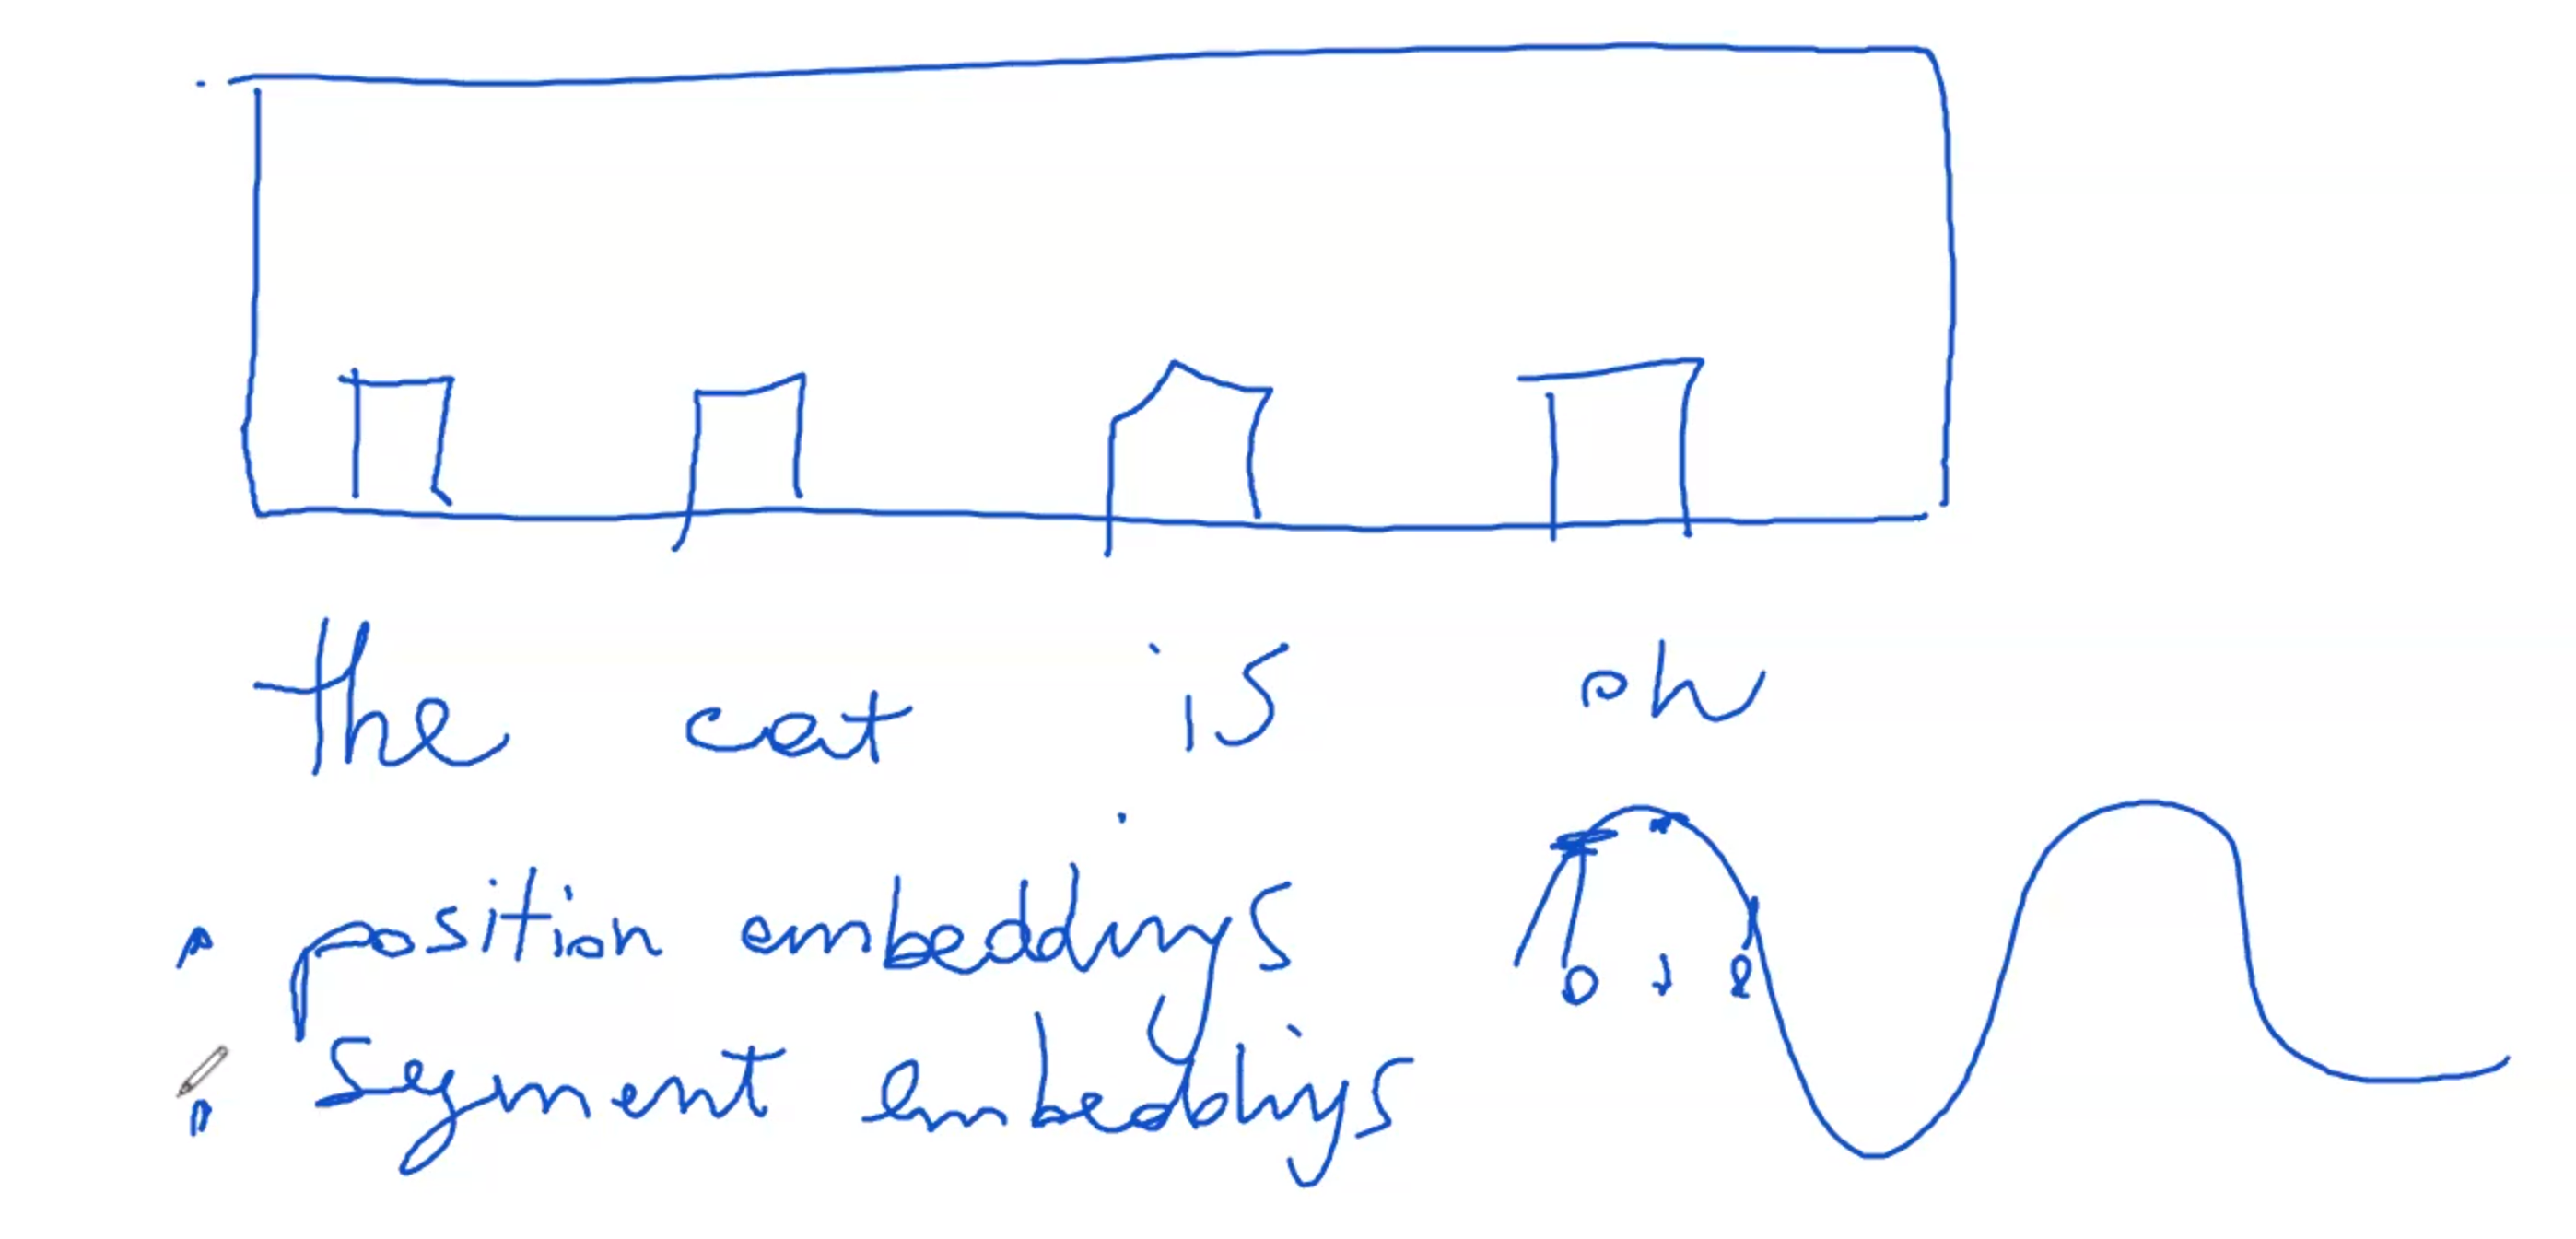 the cat is on
position embeddings
0 1 2
segment embeddings